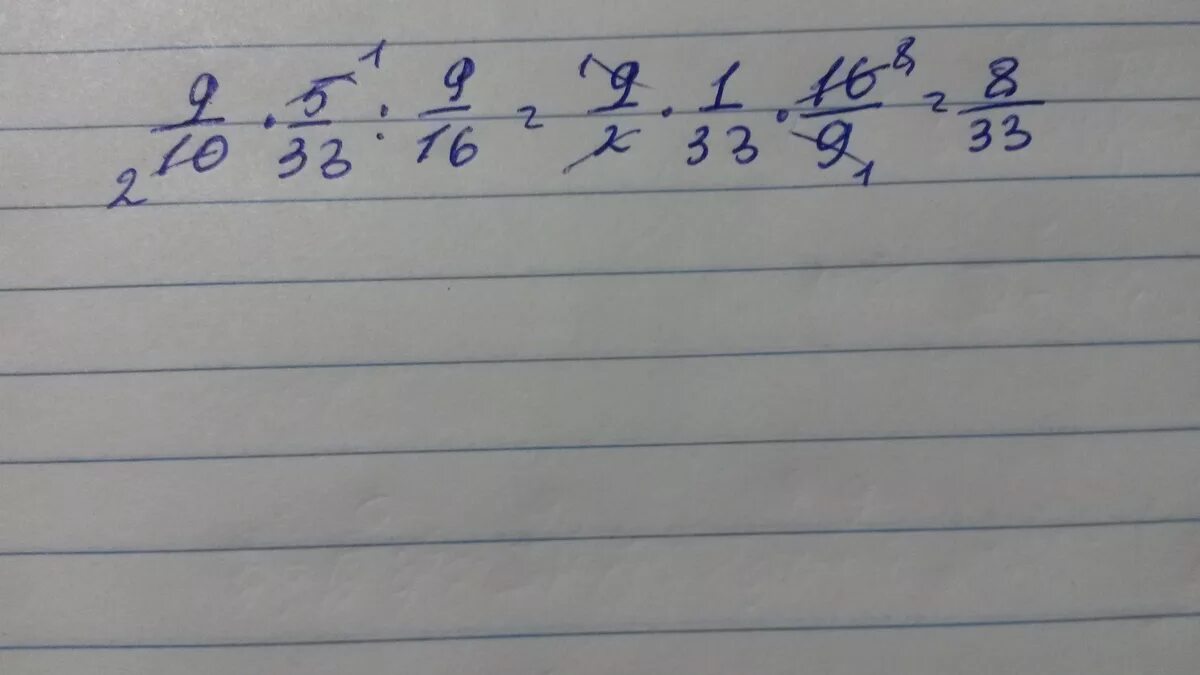 9/10 · 5/33 : 9/16 = 9/2 · 1/33 · 16/9 = 8/33